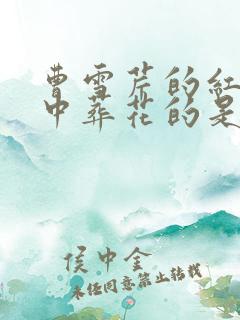 曹雪芹的红
中葬花的是
侯中金
未经同意禁止转载